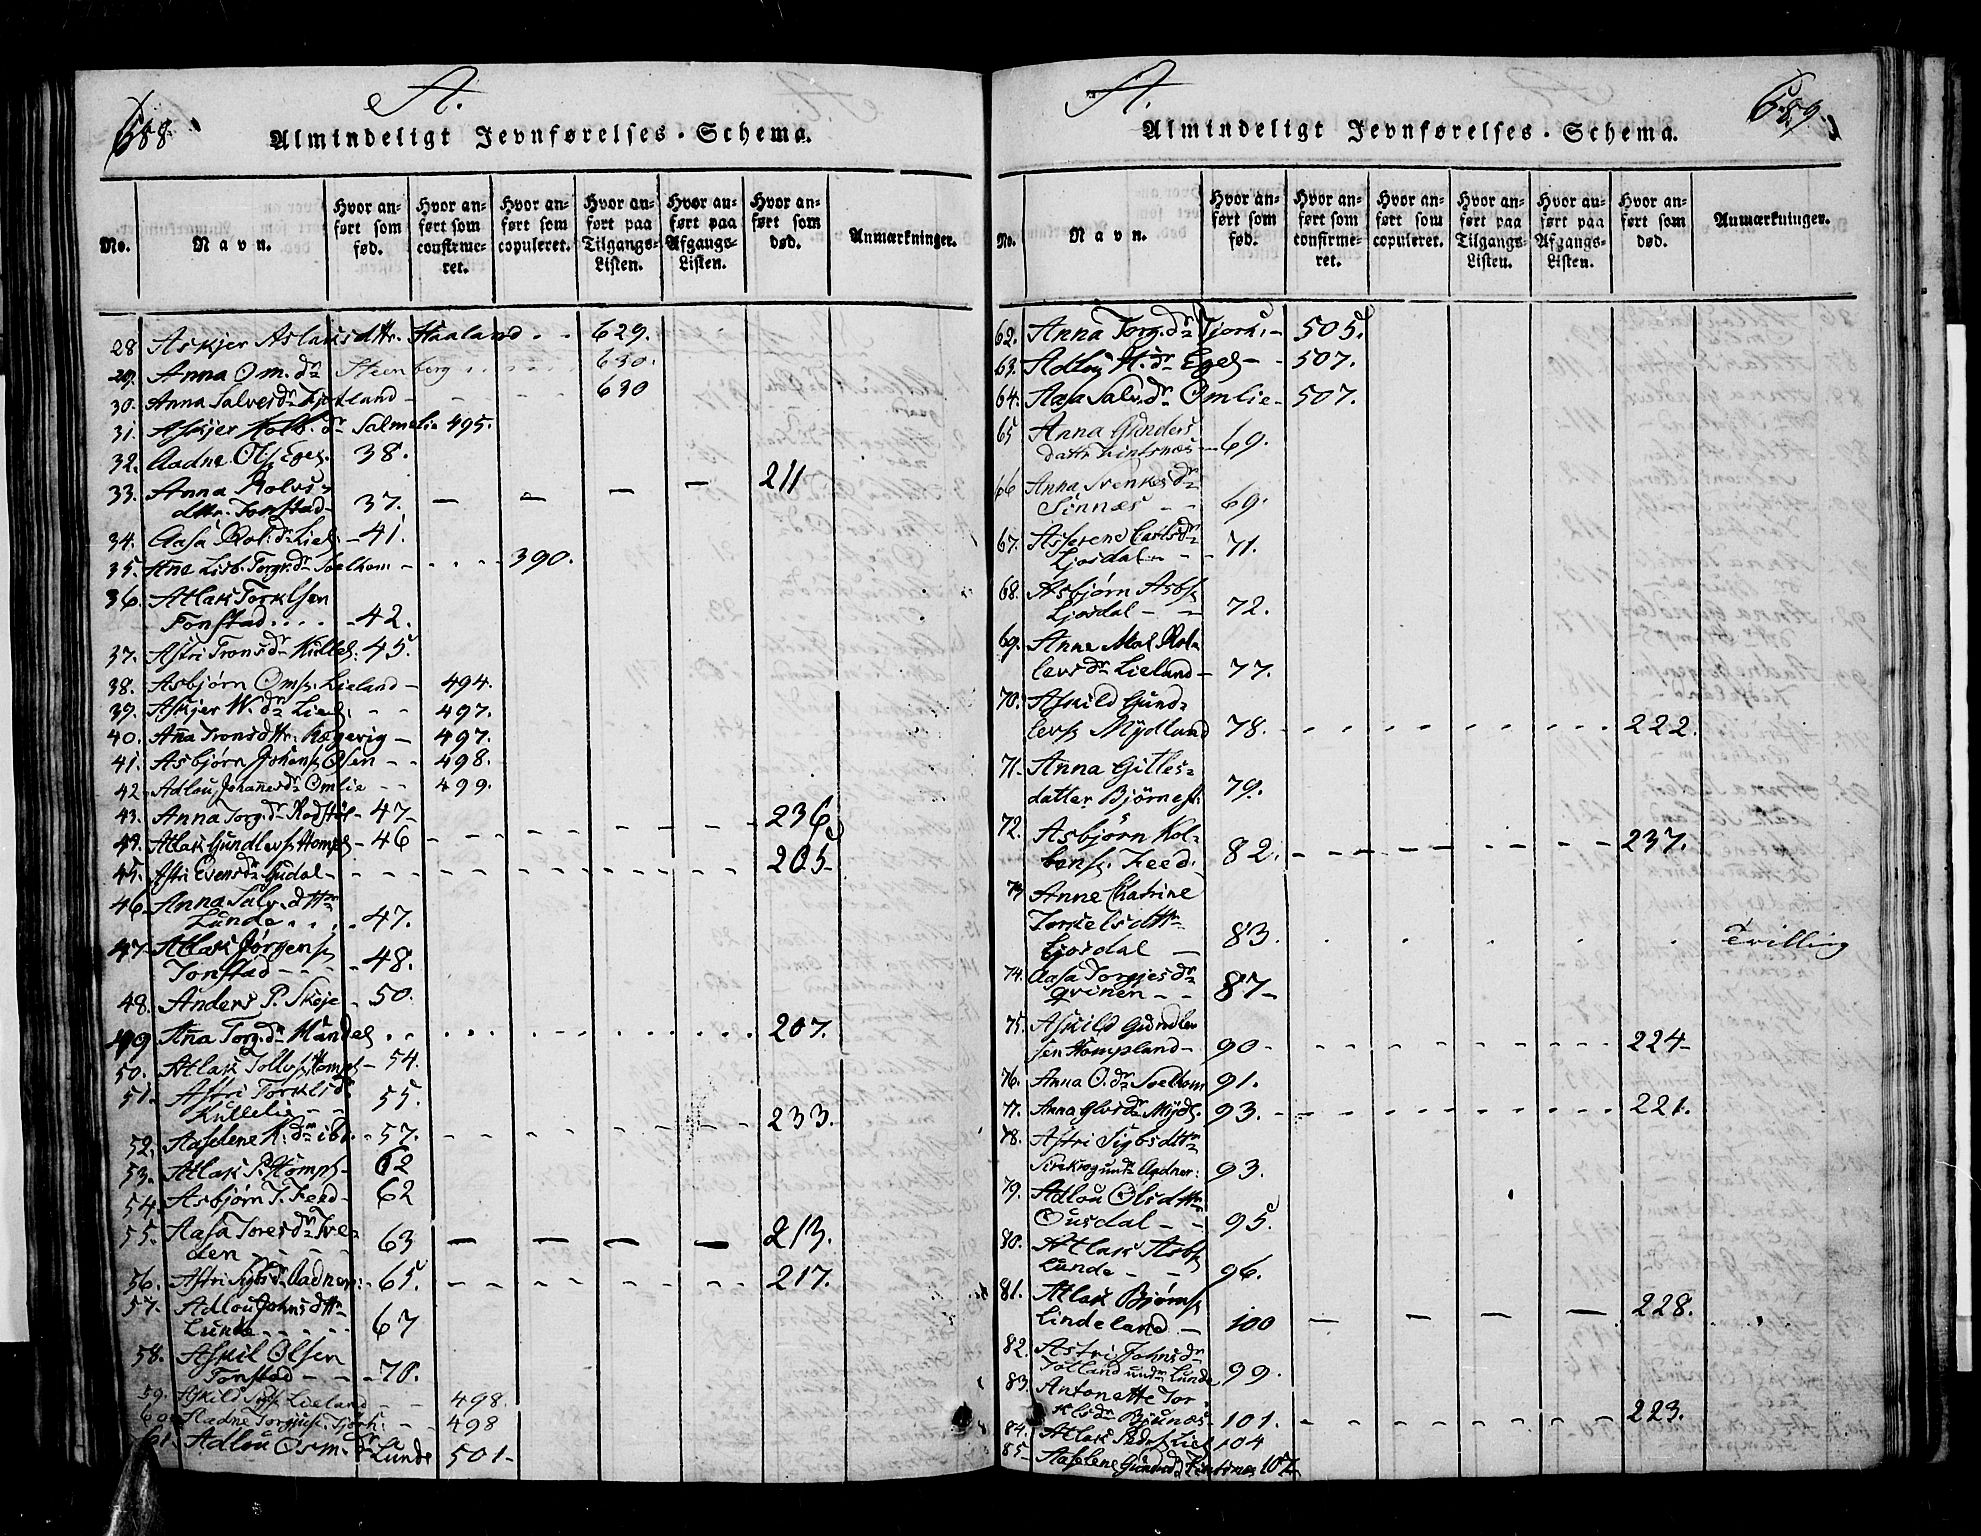 688.
A.
Almindeligt Jevnførelses-Schema.
No.
Navn.
Hvor anført som fød.
Hvor anført som confirmeret.
Hvor anført som copuleret.
Hvor anført paa Tilgangs-Listen.
Hvor anført paa Afgangs-Listen.
Hvor anført som død.
Anmærkninger.
28 Askjer Aslaksdttr. Haaland - - 629.
29. Anna Om. dr Steenberg 630.
30. Anna Salvesdr Fjotland - - - - 630
31. Askjer Kolb. dr Salmeli 495.
32. Aadne Ols Egel. 38.
33. Anna Rolvs
dttr. Tonstad - 37. — — — — 211
34. Aasa Rol. dr Liel. - 41.
35. Ane Lisb. Torgr. dr Soelhom - . . . 390.
36. Atlak Torkelsen
Tonstad . . . . - 42.
37. Astri Tronsdr Kullel. 45.
38. Asbjørn Oms. Lieland - 494.
39. Askjer W. dr Liel. - - 497.
40. Ana Tronsdttr. Rægevig - 497.
41. Asbjørn Johans Osen - - 498.
42. Adlou Johanesdr Omlie - - 499.
43. Anna Torg. dr Rodstøl - 47-
44. Atlak Gundlevs. Homps - 46 - - - - - - - 236
45. Astri Evensdr Gudal - - - - - - - - 205-
46. Anna Salv. dttr
Lunde . . . - 47.
47. Atlak Jørgens
Tonstad - - - - 48.
48. Anders P. Skeje - 50.
49. Ana Torg. dr Handel . . . . . . . . 207.
50. Atlak Tollvs. Homps - 54.
51. Astri Torkelsdr
Kullelie - - 55.
52. Aaselene K. dr ibt. - 57. - - - - - - - 233.
53. Atlak P. Homps - 62
54. Asbjørn T. Feed - 62
55. Aasa Toresdr Tve-
den - - - - 63 — — — — 213.
56. Astri Sigbsdr Aadner: - 65. - - - - - - - 217.
57. Adlou Johnsdttr
Lunde - - - - 67
58. Askil Olsen
Tonstad - - - 70.
59. Askild Lieland - - 498.
60. Aadne Torgiuss. Tjørh: - - 498
61. Adlou Osm. dr Lunde 501-
A.
689.
Almindeligt Jevnførelses-Schema.
No.
Navn.
Hvor anført som fød.
Hvor anført som confirmeret.
Hvor anført som copuleret.
Hvor anført paa Tilgangs-Listen.
Hvor anført paa Afgangs-Listen.
Hvor anført som død.
Anmærkninger.
62. Anna Torg. dr Tjorh: - 505.
63. Adlou H. dr Egel - - 507.
64. Aasa Salv. dr Omlie - 507.
65 Anna Gunders
dattr Fintsnæs - 69.
66 Anna Svenkesdr
Sinnæs - - 69.
67. Asserene Carlsdr
Ljosdal - - - 71.
68. Asbjørn Asbs
Ljosdal - - 72.
69. Anne Mal. Rol-
levsdr Lieland - 77.
70. Askild Gund-
levs Mydland 78. - - - - - - - - 222.
71. Anna Gitles-
datter Bjørnest. 79.
72. Asbjørn Kol-
bens. Feed. 82. - - - - - - - 237.
73 Anne Chatrine
Torkelsdttr
Ljosdal — 83. . . . . . Tvilling
74. Aasa Torgjesdr
Qvinen - - 87-
75. Askild Gundlev
sen Hompland - 90 - - - - - - - - 224-
76. Anna O. dr Soelhom 91.
77. Anna Olvsdr Mydl. 93. - - - - - - - - 221.
78. Astri Sigbsdttr
Sirekrog undr Aadner: 93.
79. Adlou Olsdttr
Ousdal - - 95.
80. Atlak Asbs
Lunde - - 96.
81. Atlak Bjørns
Lindeland - 100 — — — — 228.
82. Astri Johnsdr
Jotland undr Lunde 99.
83. Antonette Tor-
klsdr Bjunæs - 101. - - - - - - - - 223.
84. Atlak Liel 104
85- Aaselene Gundersdr Fintsnæs 107-